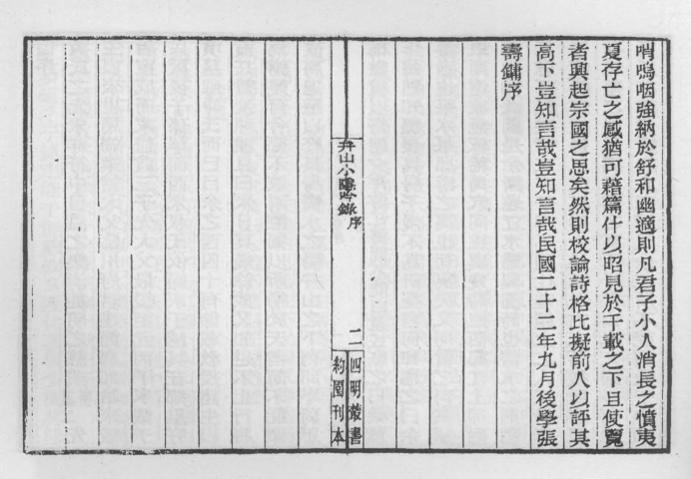 哨鳴咽強納於舒和幽適則凡君子小人消長之憤夷
夏存亡之感猶可藉篇什以昭見於千載之下且使覽
者興起宗國之思矣然則校論詩格比擬前人以評其
高下豈知言哉豈知言哉民國二十二年九月後學張
壽鏞序
弁山小隱吟錄 序
二
四明叢書
約園刊本